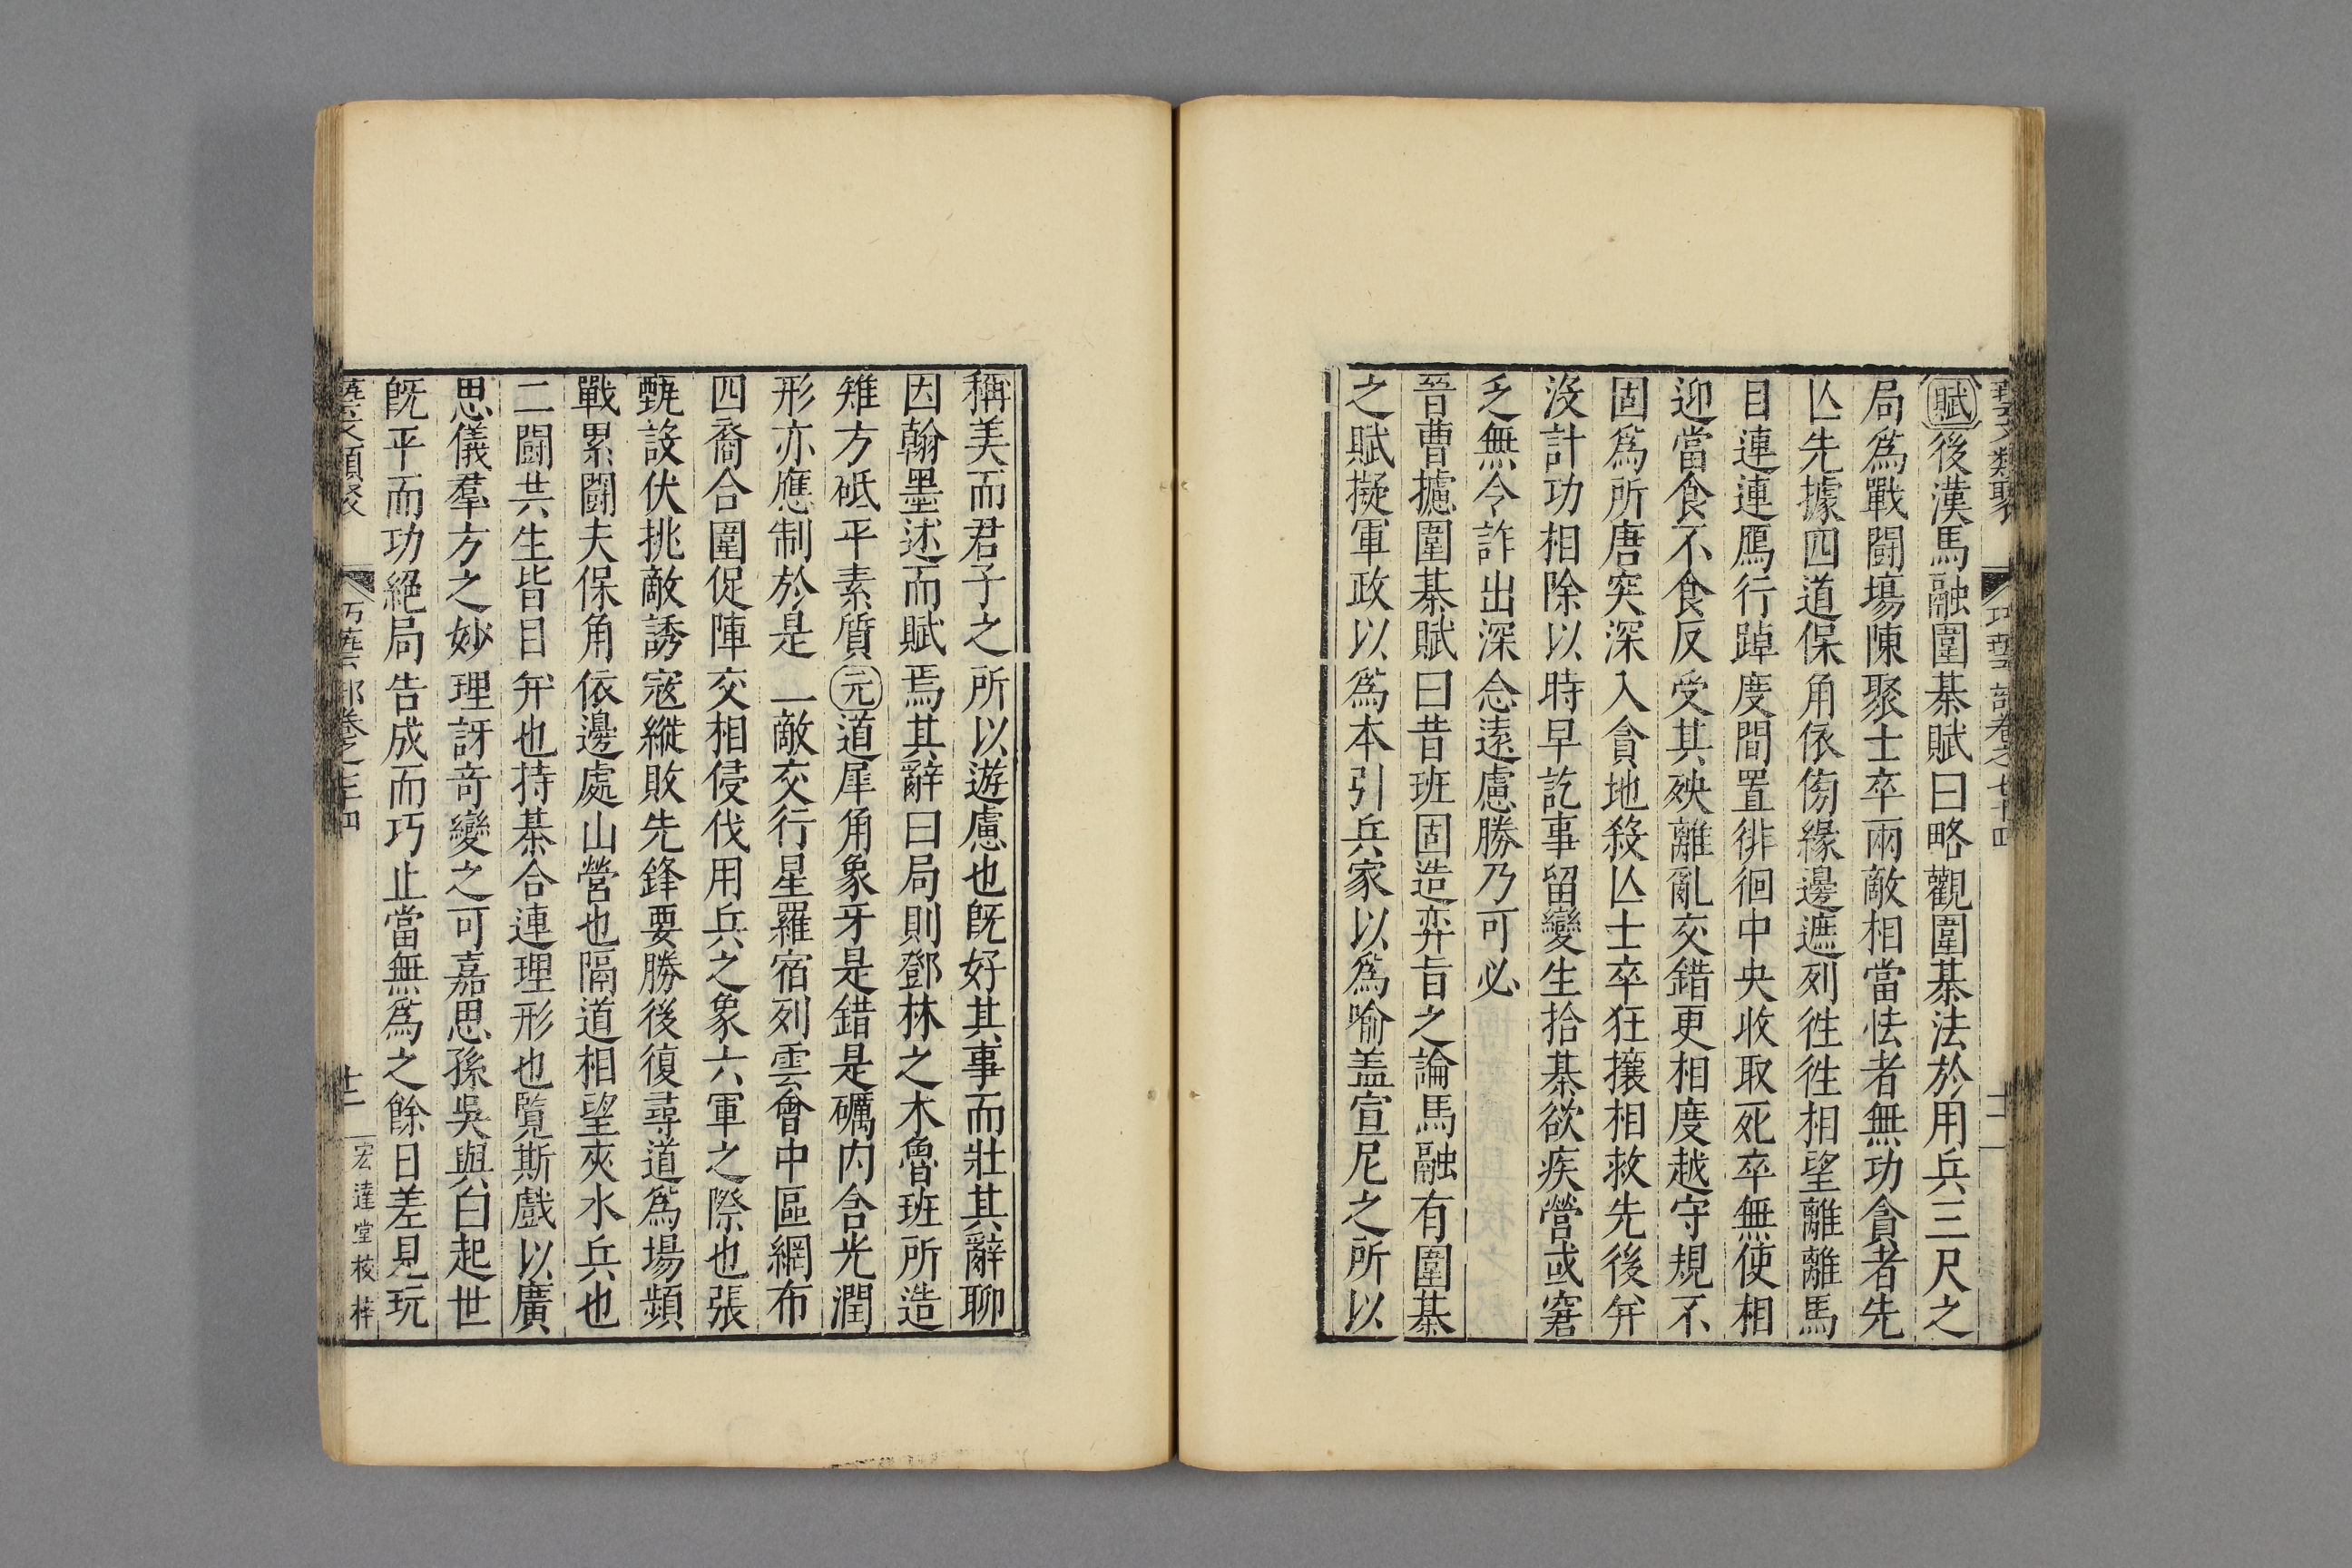 藝文類聚 巧藝部卷之七十四 十二
賦後漢馬融圍棊賦曰略觀圍棊法於用兵三尺之
局爲戰鬪塲陳聚士卒兩敵相當怯者無功貪者先
亾先據四道保角依傍緣邊遮列徃徃相望離離馬
目連連鴈行踔度間置徘徊中央收取死卒無使相
迎當食不食反受其殃離亂交錯更相度越守規不
固爲所唐突深入貪地殺亾士卒狂攘相救先後并
沒計功相除以時早訖事留變生拾棊欲疾營或窘
乏無令詐出深念遠慮勝乃可必
晉曹攄圍棊賦曰昔班固造弈旨之論馬融有圍棊
之賦擬軍政以爲本引兵家以爲喻盖宣尼之所以
稱美而君子之所以遊慮也旣好其事而壯其辭聊
因翰墨述而賦焉其辭曰局則鄧林之木魯班所造
雉方砥平素質元道犀角象牙是錯是礪内含光潤
形亦應制於是一敵交行星羅宿列雲會中區網布
四裔合圍促陣交相侵伐用兵之象六軍之際也張
甄設伏挑敵誘寇縱敗先鋒要勝後復尋道爲場頻
戰累鬪夫保角依邊處山營也隔道相望夾水兵也
二鬪共生皆目并也持棊合連理形也覧斯戲以廣
思儀羣方之妙理訝竒變之可嘉思孫吳與白起世
旣平而功絕局告成而巧止當無爲之餘日差見玩
藝文類聚 巧藝部卷之七十四 十二 宏達堂校梓